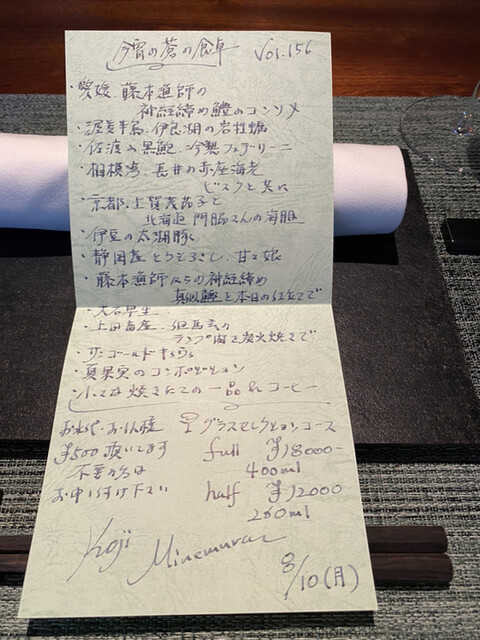 今宵の蒼の食卓 Vol.156
・愛媛 藤本漁師の
神経締め鱧のコンソメ
・渥美半島、伊良湖の岩牡蠣
・佐渡の黒鮑 冷製フェデリーニ
・相模湾、長井の赤座海老
ビスクと共に
・京都、上賀茂茄子と
北海道 門脇さんの海胆
・伊豆の太湖豚
・静岡産とうもろこし、甘々娘
・藤本漁師からの神経締め
真羽鰹を本日の仕立てで
・大石早生
・上田畜産、但馬玄の
ランプ肉を炭火焼きで
・サンゴールドキウイ
・夏果実のコンポジション
・小さな焼きたての一品とコーヒー
お水代・おしぼり
グラスセレクションコース
¥500頂いてます
full ¥18000-
不要の方は
400ml
お申し付け下さい
half ¥12000
260ml
Koji Minemura
8/10(月)